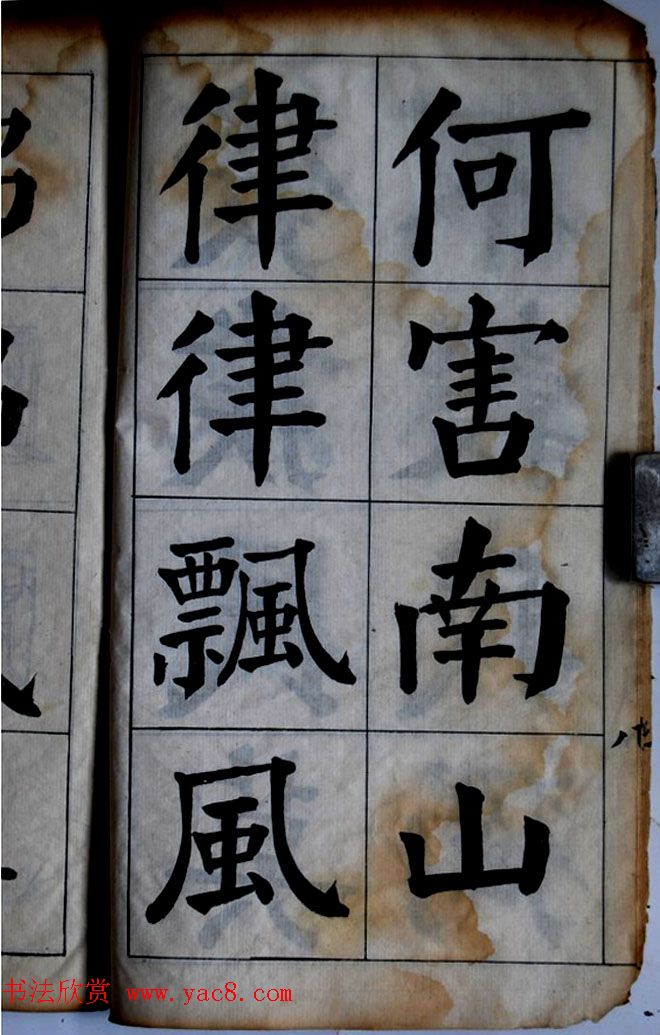 何害南山
律律飄風
书法欣赏 www.yac8.com